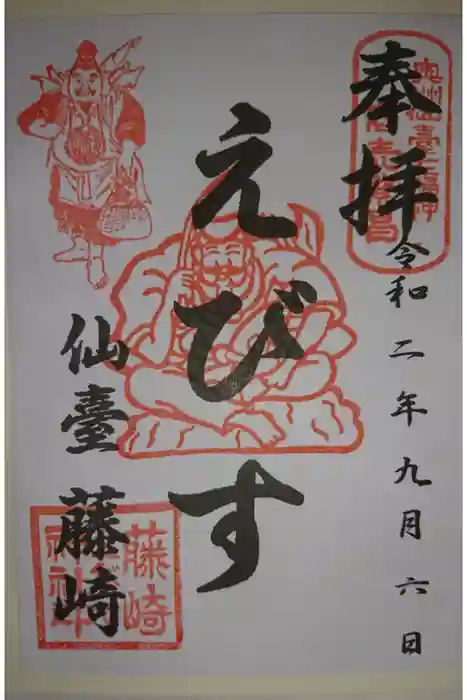 奉拝
奥州仙臺七福神
令和二年九月六日
えびす
仙臺 藤崎
藤崎
神社